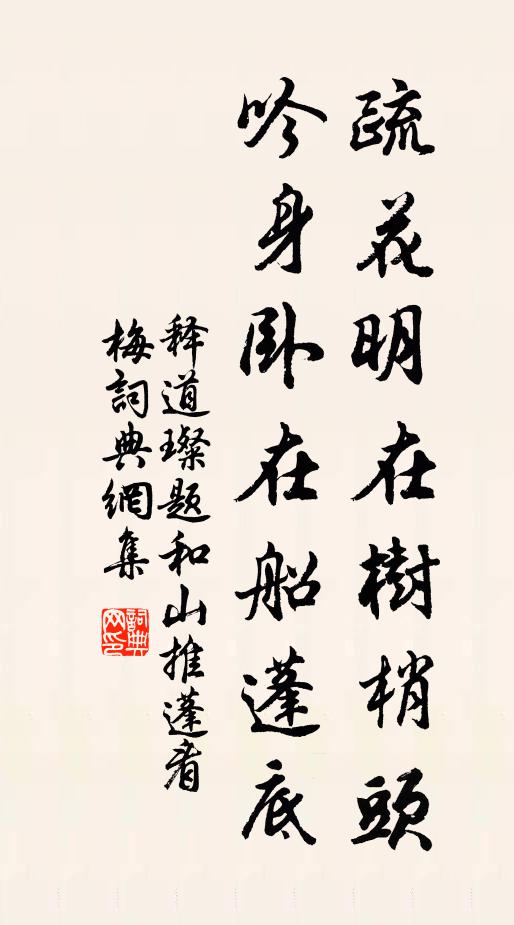 疏花明在樹梢頭
吟身卧在船蓬底
释道璨题和山推蓬看
梅詞典網集
詞典网印